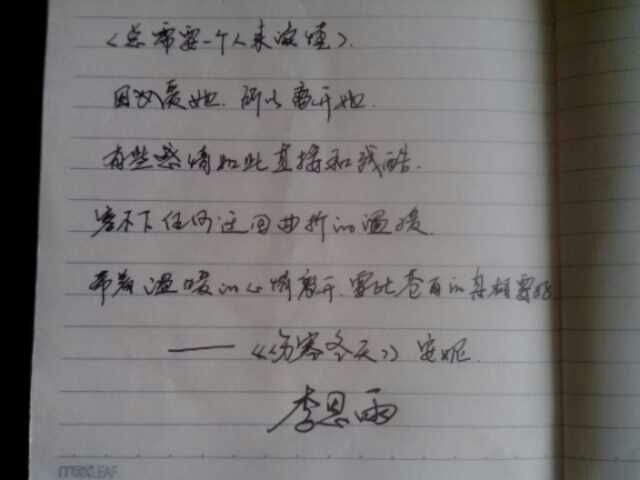 〈总需要一个人来凉薄〉.
因为爱她.所以离开她.
有些感情如此直接和残酷.
容不下任何迂回曲折的温暖.
带着温暖的心情离开.要比苍白的真相要好
——《伤寒冬天》安妮.
李恩雨
LEAF